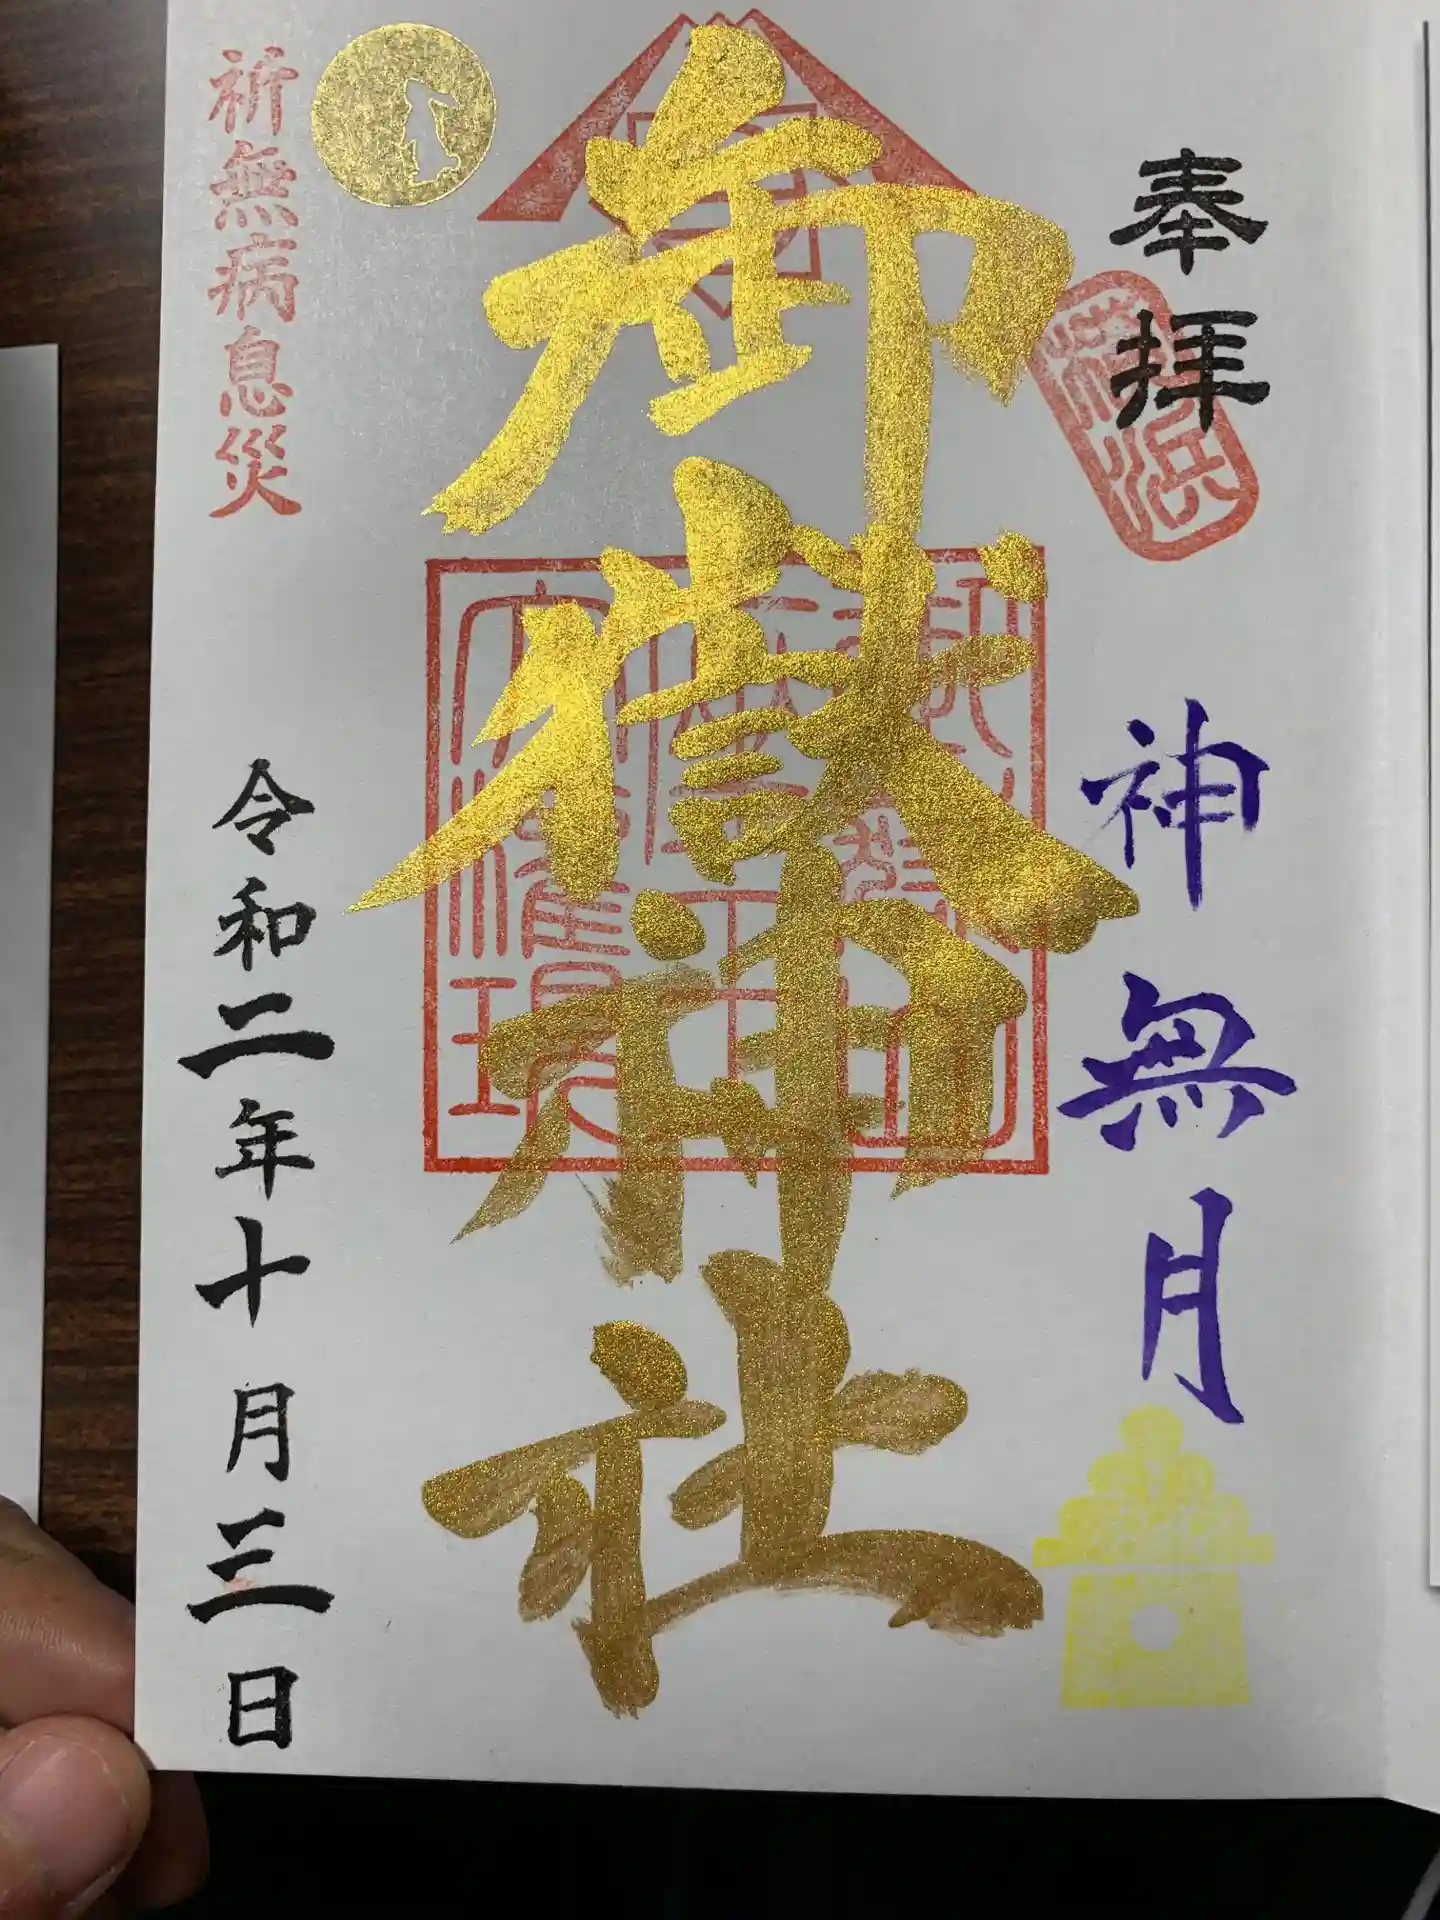 奉拝
神無月
御嶽神社
祈無病息災
令和二年十月三日